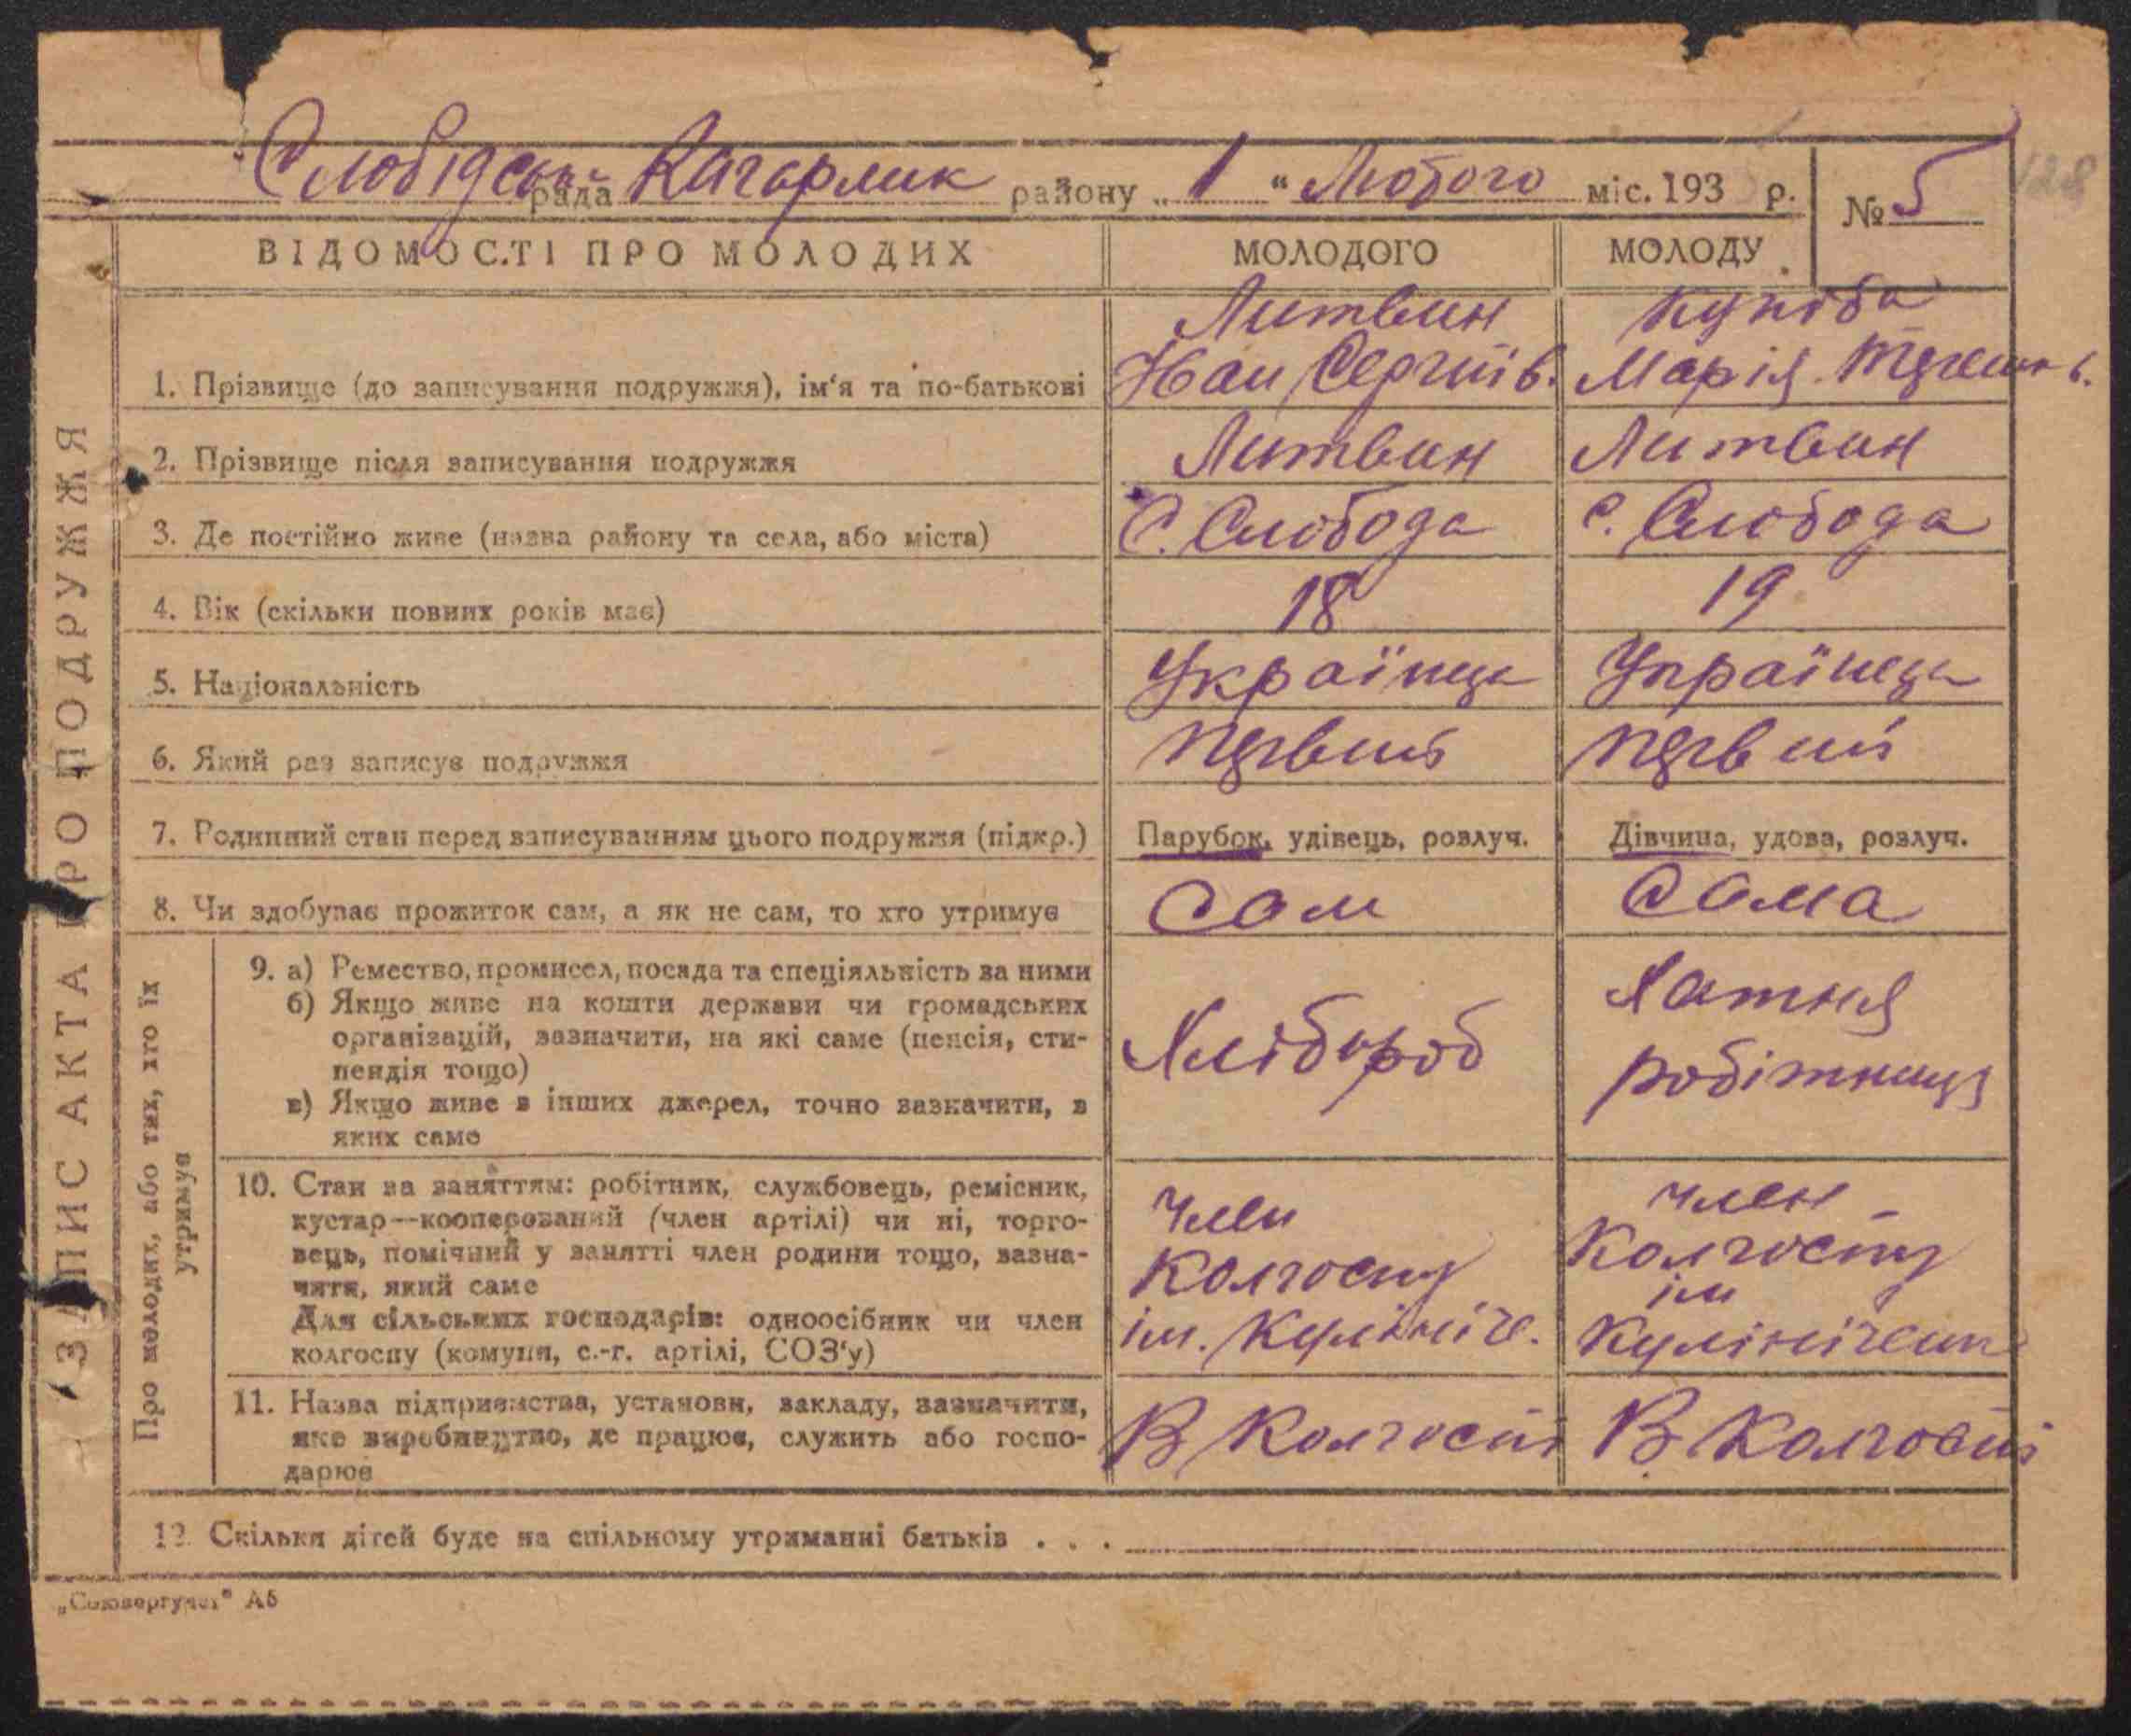 Слобідська рада Кагарлик району „ 1 “ Лютого міс. 193 р. № 5
128
ВІДОМОСТІ ПРО МОЛОДИХ МОЛОДОГО МОЛОДУ
1. Прізвище (до записування подружжя), ім‘я та по-батькові Литвин Іван Сергіїв. Марія
2. Прізвище після записування подружжя Литвин Литвин
3. Де постійно живе (назва району та села, або міста) С. Слобода с. Слобода
4. Вік (скільки повних років має) 18 19
5. Національність Українець Українець
6. Який раз записує подружжя Первий Первий
7. Родинний стан перед записуванням цього подружжя (підкр.) Парубок, удівець, розлуч. Дівчина, удова, розлуч.
8. Чи здобуває прожиток сам, а як не сам, то хто утримує Сам Сама
Про молодих, або тих, хто їх утримує
9. а) Ремество, промисел, посада та спеціяльність за ними
б) Якщо живе на кошти держави чи громадських
організацій, зазначити, на які саме (пенсія, сти-
пендія тощо)
в) Якщо живе з інших джерел, точно зазначити, з
яких саме
Хлібороб
Хатня
робітниця
10. Стан за заняттям: робітник, службовець, ремісник,
кустар—кооперований (член артілі) чи ні, торго-
вець, помічний у занятті член родини тощо, зазна-
чити, який саме
Для сільських господарів: одноосібник чи член
колгоспу (комуни, с.-г. артілі, СОЗ‘у)
Член
Колгоспу
ім. Кулініче.
член
Колгоспу
ім
Кулініченк
11. Назва підприємства, установи, закладу, зазначити,
яке виробництво, де працює, служить або госпо-
дарює
В Колгоспі В Колгоспі
12. Скільки дітей буде на спільному утриманні батьків . . .
ЗАПИС АКТА ПРО ПОДРУЖЖЯ
„Союзоргучет“ А5